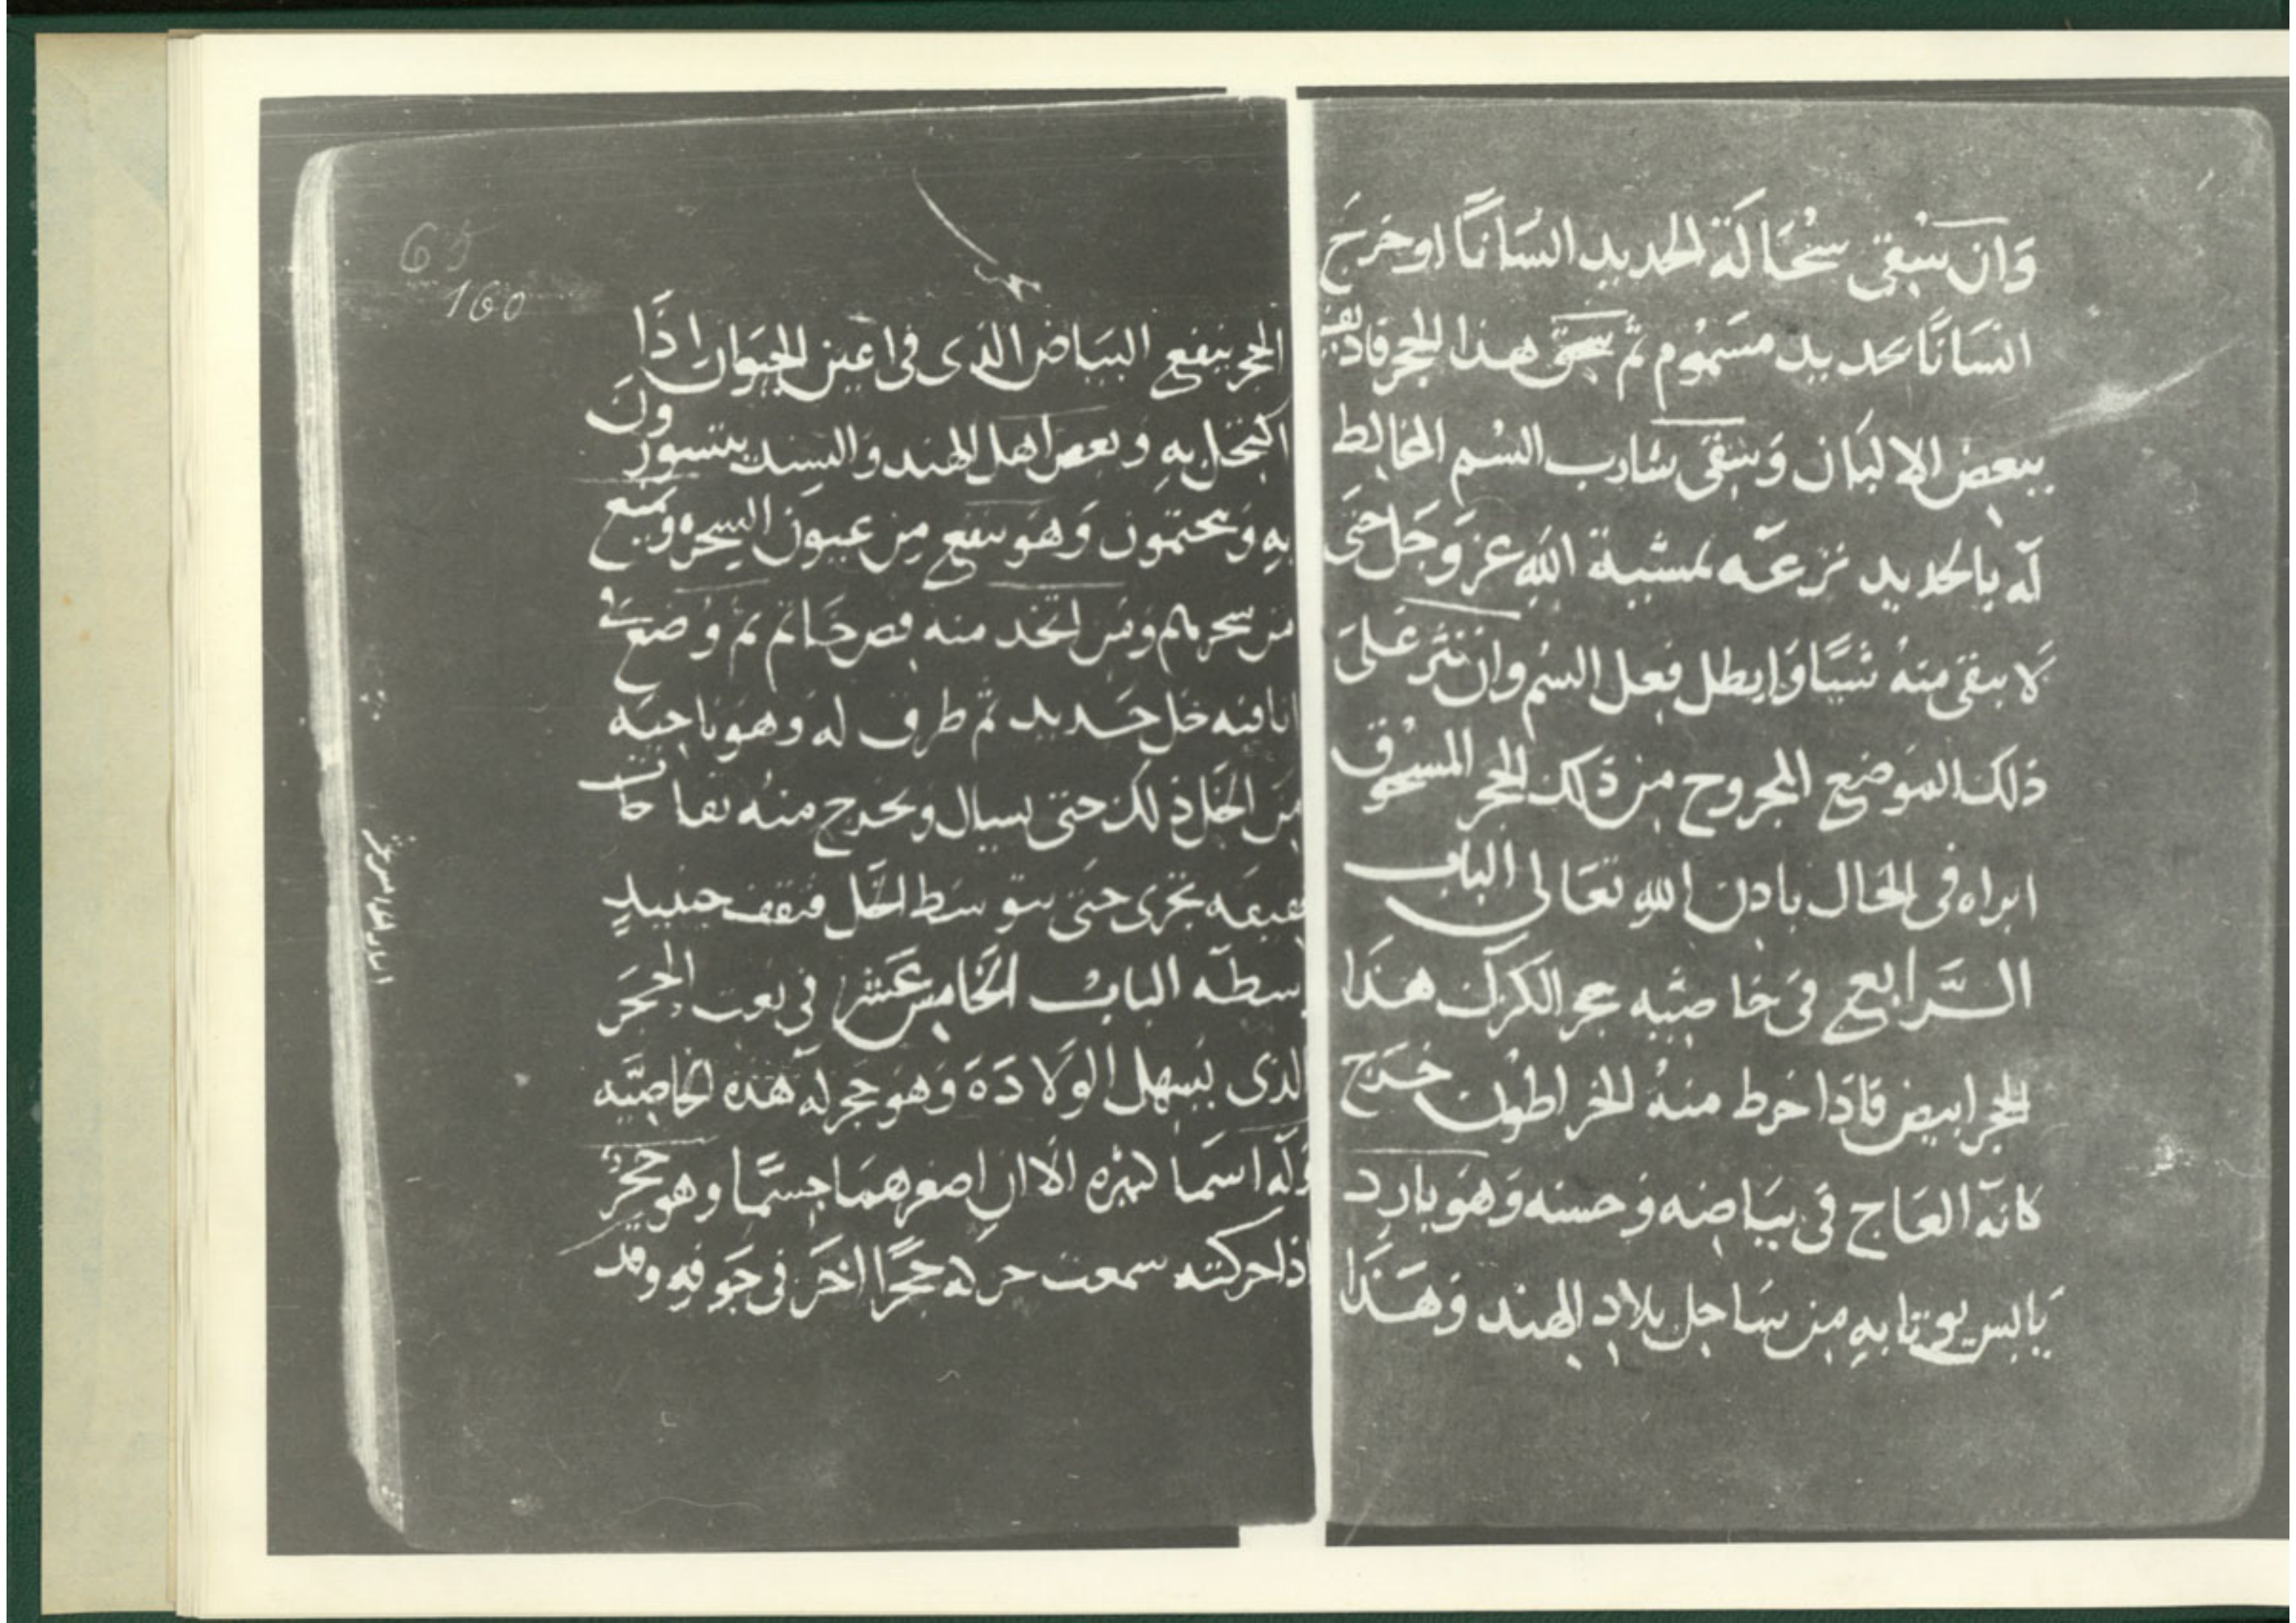 وَان سُقى سُحَالَة الحديد انسَانًا اوخرَجَ
انسَانًا بحديد مسَمُوم ثم سحق هذا الحجر فاذيف
ببعض الالبَان وَسَقى شارب السُم المخالط
له بالحديد نزعه بمشية الله عز وَجَل حتى
لا يبقى منهُ شيًا وَابطل فعل السُم وان نثر عَلىَ
ذلك الموَضع المجروح من ذلك الحجر المسحوق
ابراه فى الحَال باذن الله تعَالى الباب
الرَّابع فى خاصّيه حجر الكرك هذَا
الحجر ابيض فاذَا خرط منهُ الخراطون خرَج
كانه العَاج فى بيَاضه وَحسنه وَهوَ بارد
يَابس يوتا به من سَاحل بلاد الهند وَهَذَا
65
160
الحجر ينفع البيَاض الذى فى اعين الحيوَان اذَا
اكتحل به وبعض اهل الهند وَالسند يتسورونَ
به وَيختمون وَهوَ ينفع من عيون السحره وَيمنع
من سحرهم وَمن اتخذ منه فص خَاتم ثم وُضعَ فى
انا فيه خل حَديد ثم طرف له وَهوَ ناحيَه
منَ الخَل ذلك حتى يسيال وَيخرج منهُ نفاخات
تجرى حتى يتوسَط الخَل فتقف حينيذٍ
الباب الخَامسَ عَشر فى نعت الحَجَر
الذى يسَهل الوَلادَة وَهوَ حجر له هَذه الخاصّيه
وَله اسمَا كثيره الا ان اصغرهمَا جسمًا وهو حَجَر
اذا حركته سمعت حركة حجرًا اخَر فى جَوفه وقد